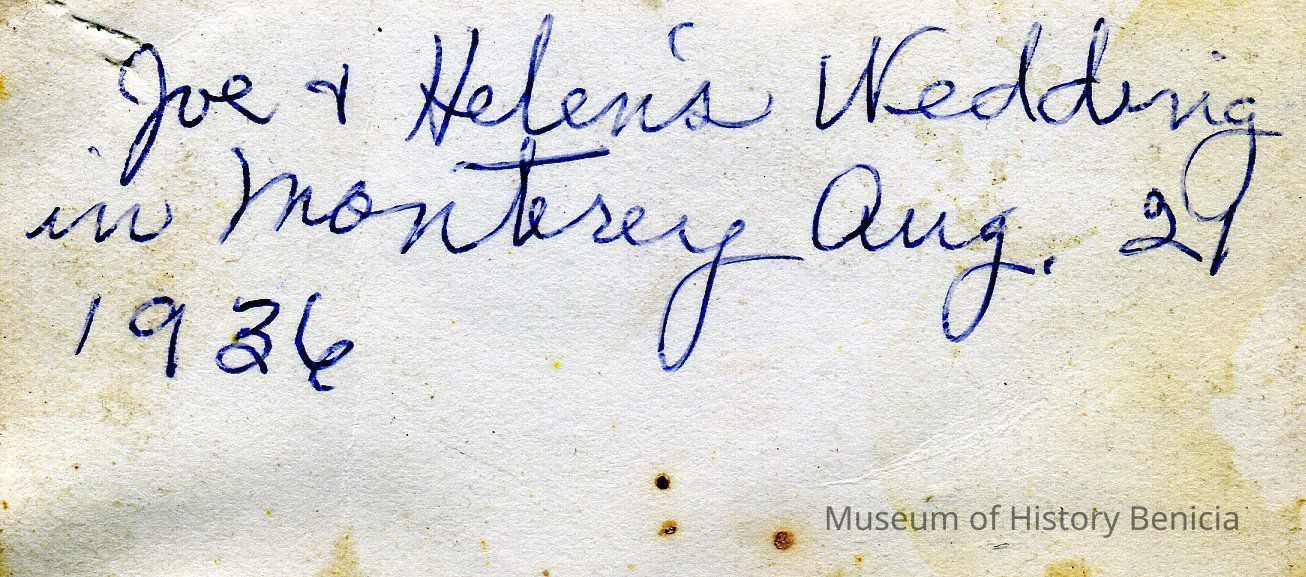 Joe & Helen's Wedding
in Monterey Aug. 29
1936
Museum of History Benicia